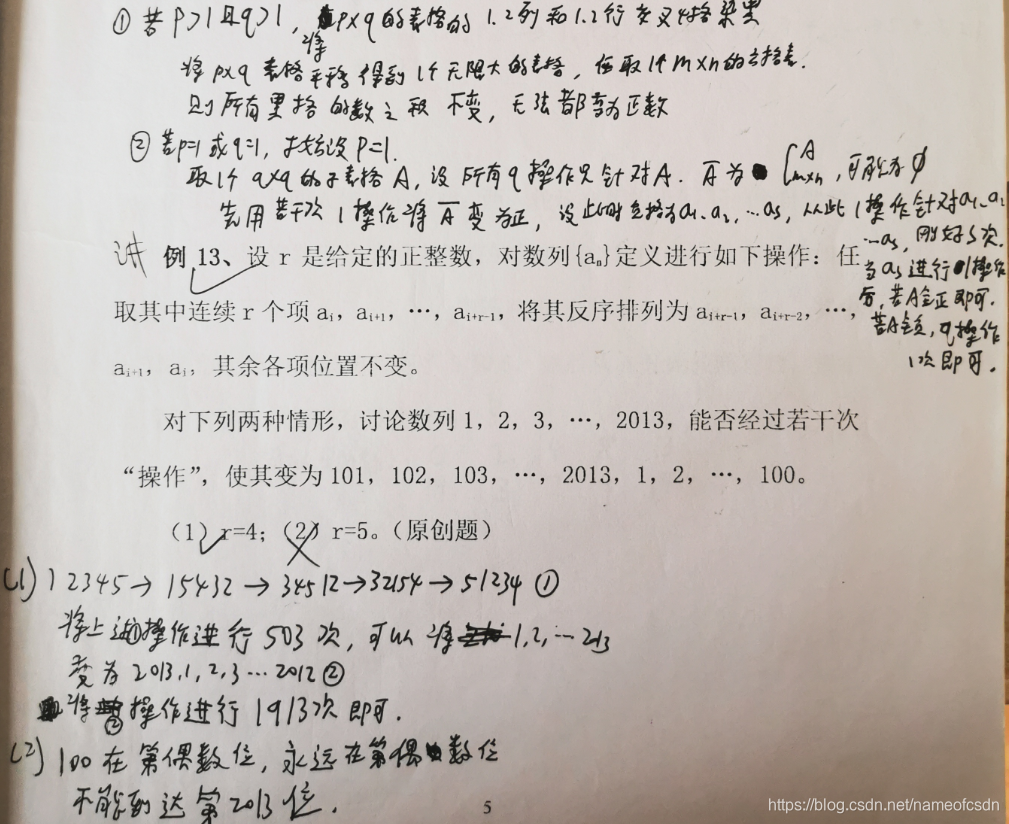 ① 若p>1且q>1, 将p×q的表格的1.2列和1.2行交叉4格染黑
将p×q表格平移得到1个无限大的表格, 任取1个m×n的方格表.
则所有黑格的数之积不变, 无法都变为正数
② 若p=1或q=1, 不妨设p=1.
取1个q×q的子表格A, 设所有q操作只针对A. Ā为 ∁ᴬₘₓₙ, 可能为∅
先用若干次1操作将Ā变为正, 设此时 为a₁、a₂, …a₅, 从此1操作针对a₁、a₂
…a₅, 刚好5次.
当a₅进行1操作
后, 若A全正即可.
若A全负, q操作
1次即可.
讲 例 13、设 r 是给定的正整数，对数列{aₙ}定义进行如下操作：任
取其中连续 r 个项 aᵢ，aᵢ₊₁，…，aᵢ₊ᵣ₋₁，将其反序排列为 aᵢ₊ᵣ₋₁，aᵢ₊ᵣ₋₂，…，
aᵢ₊₁，aᵢ，其余各项位置不变。
对下列两种情形，讨论数列 1，2，3，…，2013，能否经过若干次
“操作”，使其变为 101，102，103，…，2013，1，2，…，100。
（1）r=4；（2）r=5。（原创题）
(1) 12345→15432→34512→32154→51234 ①
将上述①操作进行503次, 可以将1,2,…2013
变为2013,1,2,3…2012 ②
将②操作进行1913次即可.
(2) 100在第偶数位, 永远在第偶数位
不能到达第2013位.
5
https://blog.csdn.net/nameofcsdn